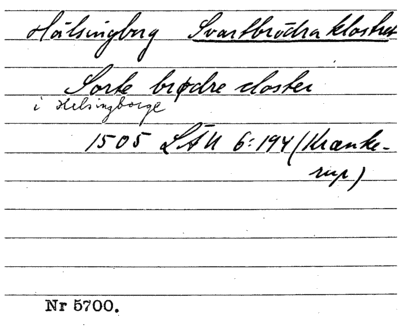 Hälsingborg Svartbrödraklostret
Sorte brødre closter
i Helsingborge
1505 LÄU 6:194 (Krænke-
rup)
Nr 5700.